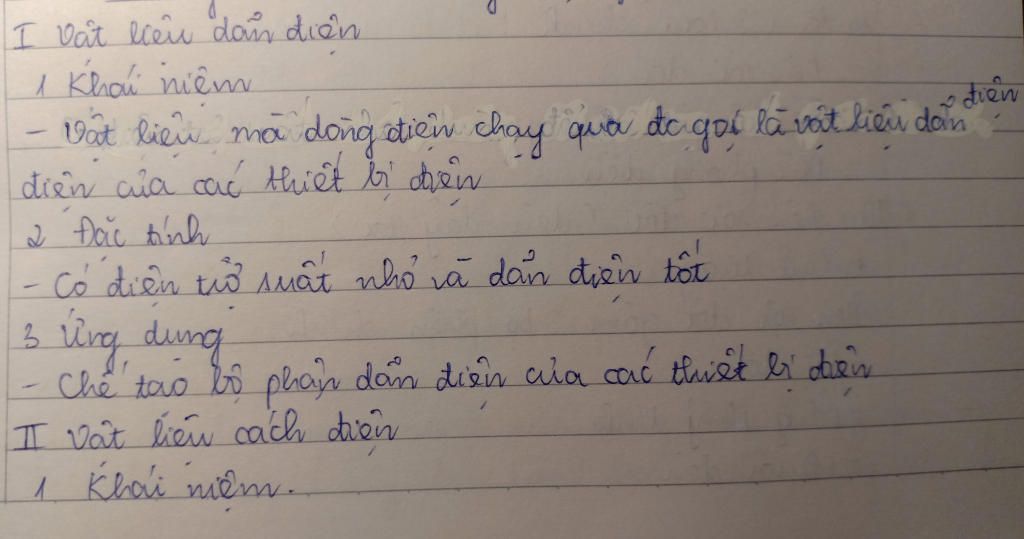 I Vật liệu dẫn điện
1 Khái niệm
- Vật liệu mà dòng điện chạy qua đc gọi là vật liệu dẫn điện
điện của các thiết bị điện
2 Đặc tính
- Có điện trở suất nhỏ và dẫn điện tốt
3 Ứng dụng
- Chế tạo bộ phận dẫn điện của các thiết bị điện
II Vật liệu cách điện
1 Khái niệm.